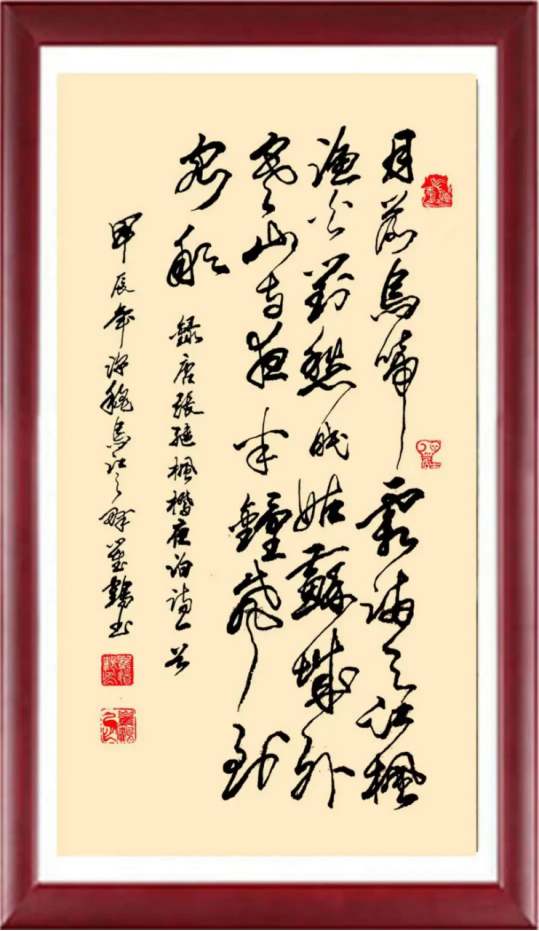 月落烏啼霜满天江楓
漁火對愁眠姑蘇城外
寒山寺夜半鐘聲到
客船
錄唐張繼楓橋夜泊詩一首
甲辰年 烏江之畔 書